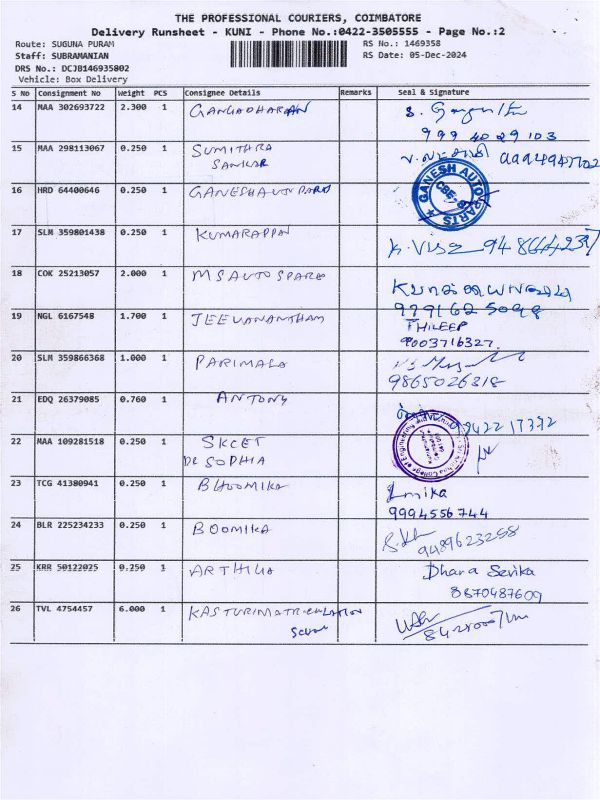 THE PROFESSIONAL COURIERS, COIMBATORE
Delivery Runsheet - KUNI - Phone No.:0422-3505555 - Page No.:2
Route: SUGUNA PURAM
RS No.: 1469358
Staff: SUBRAMANIAN
RS Date: 05-Dec-2024
DRS No.: DCJB146935802
Vehicle: Box Delivery
S No Consignment No Weight PCS Consignee Details Remarks Seal & Signature
14 MAA 302693722 2.300 1 GANGADHARAN
999 4029 103
15 MAA 298113067 0.250 1 SUMITHRA
SANKAR
16 HRD 64400646 0.250 1 GANESHAUTO PARTS
GANESH AUTO PARTS
17 SLM 359801438 0.250 1 KUMARAPPAN
18 COK 25213057 2.000 1 MS AUTO SPARE
19 NGL 6167548 1.700 1 JEEVANANTHAM
THILEEP
9003716327
20 SLM 359866368 1.000 1 PARIMALA
9865026318
21 EDQ 26379085 0.760 1 ANTONY
22 MAA 109281518 0.250 1 SKCET
DR SOPHIA
College of Engineering
23 TCG 41380941 0.250 1 BHOOMIKA
9994556744
24 BLR 225234233 0.250 1 BOOMIKA
9489623258
25 KRR 50122025 0.250 1 ARTHIKA
Dhara Sevika
8870487609
26 TVL 4754457 6.000 1